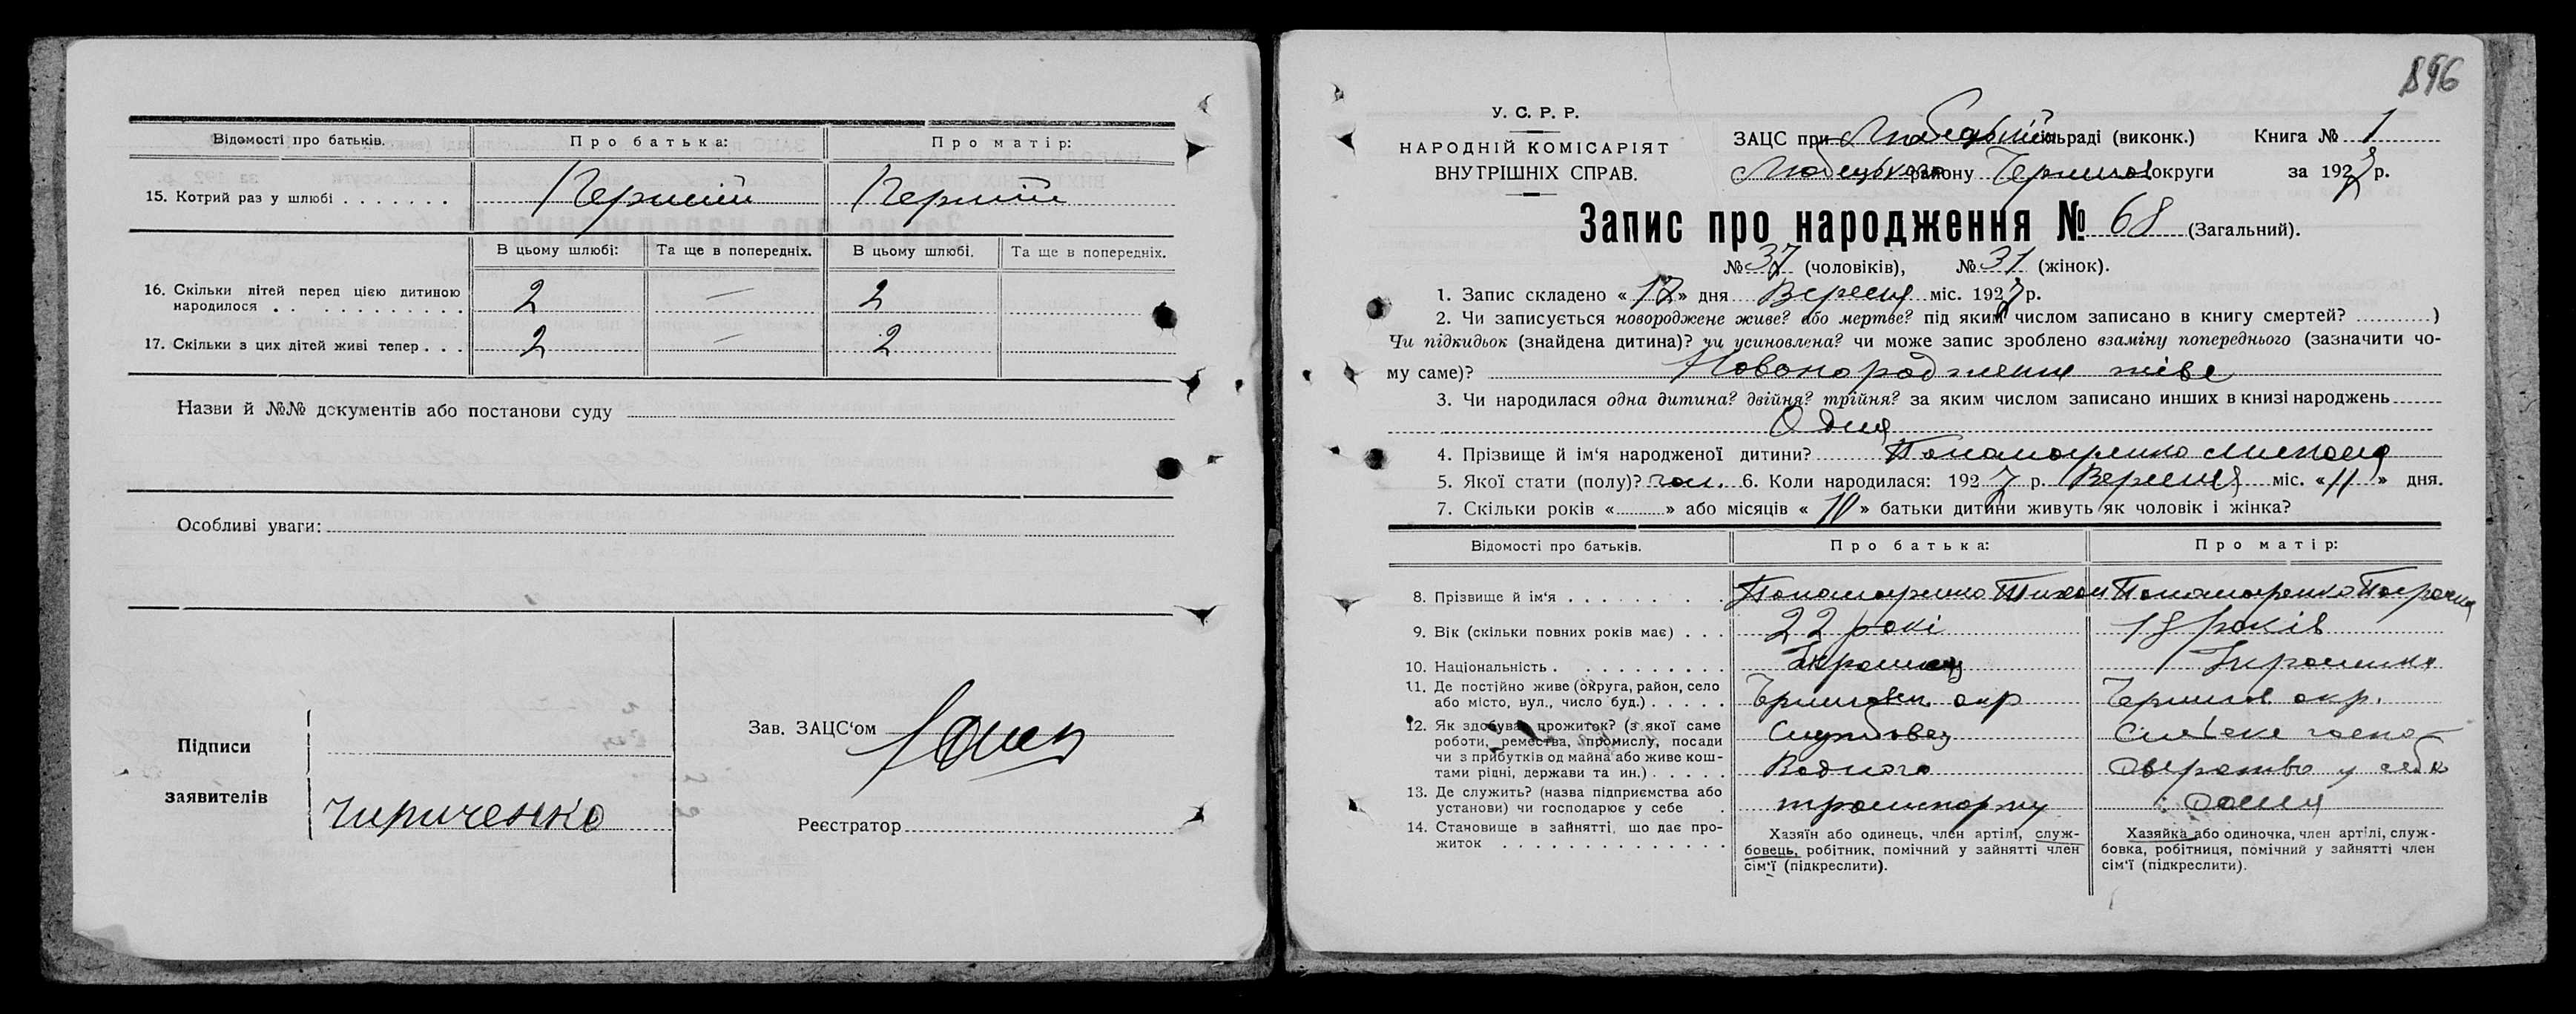 Відомості про батьків. Про батька: Про матір:
15. Котрий раз у шлюбі . . . . . . . Перший Перший
В цьому шлюбі: Та ще в попередніх. В цьому шлюбі. Та ще в попередніх.
16. Скільки дітей перед цією дитиною
народилося . . . . . . . . . . . 2 — 2
17. Скільки з цих дітей живі тепер . . . 2 — 2
Назви й №№ документів або постанови суду
Особливі уваги:
Підписи
заявителів
Чириченко
Зав. ЗАЦС'ом
Реєстратор
896
У. С. Р. Р.
НАРОДНІЙ КОМІСАРІЯТ
ВНУТРІШНІХ СПРАВ.
ЗАЦС при Любецькій сільраді (виконк.) Книга № 1
Любецького району Черниг округи за 1927 р.
Запис про народження № 68 (Загальний).
№ 37 (чоловіків), № 31 (жінок).
1. Запис складено «12» дня Вересня міс. 1927 р.
2. Чи записується новороджене живе? або мертве? під яким числом записано в книгу смертей? ............)
Чи підкидьок (знайдена дитина)? чи усиновлена? чи може запис зроблено взаміну попереднього (зазначити чо-
му саме)? Новонароджене живе
3. Чи народилася одна дитина? двійня? трійня? за яким числом записано инших в книзі народжень
Одна
4. Прізвище й ім'я народженої дитини? Пономаренко Микола
5. Якої стати (полу)? чол. 6. Коли народилася: 1927 р. Вересня міс. «11» дня.
7. Скільки років «..........» або місяців «10» батьки дитини живуть як чоловік і жінка?
Відомості про батьків. Про батька: Про матір:
8. Прізвище й ім'я . . . . . . . . Пономаренко Тихон Пономаренко Параска
9. Вік (скільки повних років має) . . . 22 рокі 18 років
10. Національність . . . . . . . . . . Украинец Украинка
11. Де постійно живе (округа, район, село
або місто, вул., число буд.) . . . . . Чернигов. окр Чернигов окр.
12. Як здобуває прожиток? (з якої саме
роботи, ремества, промислу, посади
чи з прибутків од майна або живе кош-
тами рідні, держави та ин.) . . . . .
Службовец
Водного
транспорту
Сільске госпо
дарство у себе
дома
13. Де служить? (назва підприємства або
установи) чи господарює у себе .
14. Становище в зайнятті, що дає про-
житок . . . . . . . . . . . . . .
Хазяїн або одинець, член артілі, служ-
бовець, робітник, помічний у зайнятті член
сім'ї (підкреслити).
Хазяйка або одиночка, член артілі, служ-
бовка, робітниця, помічний у зайнятті член
сім'ї (підкреслити).